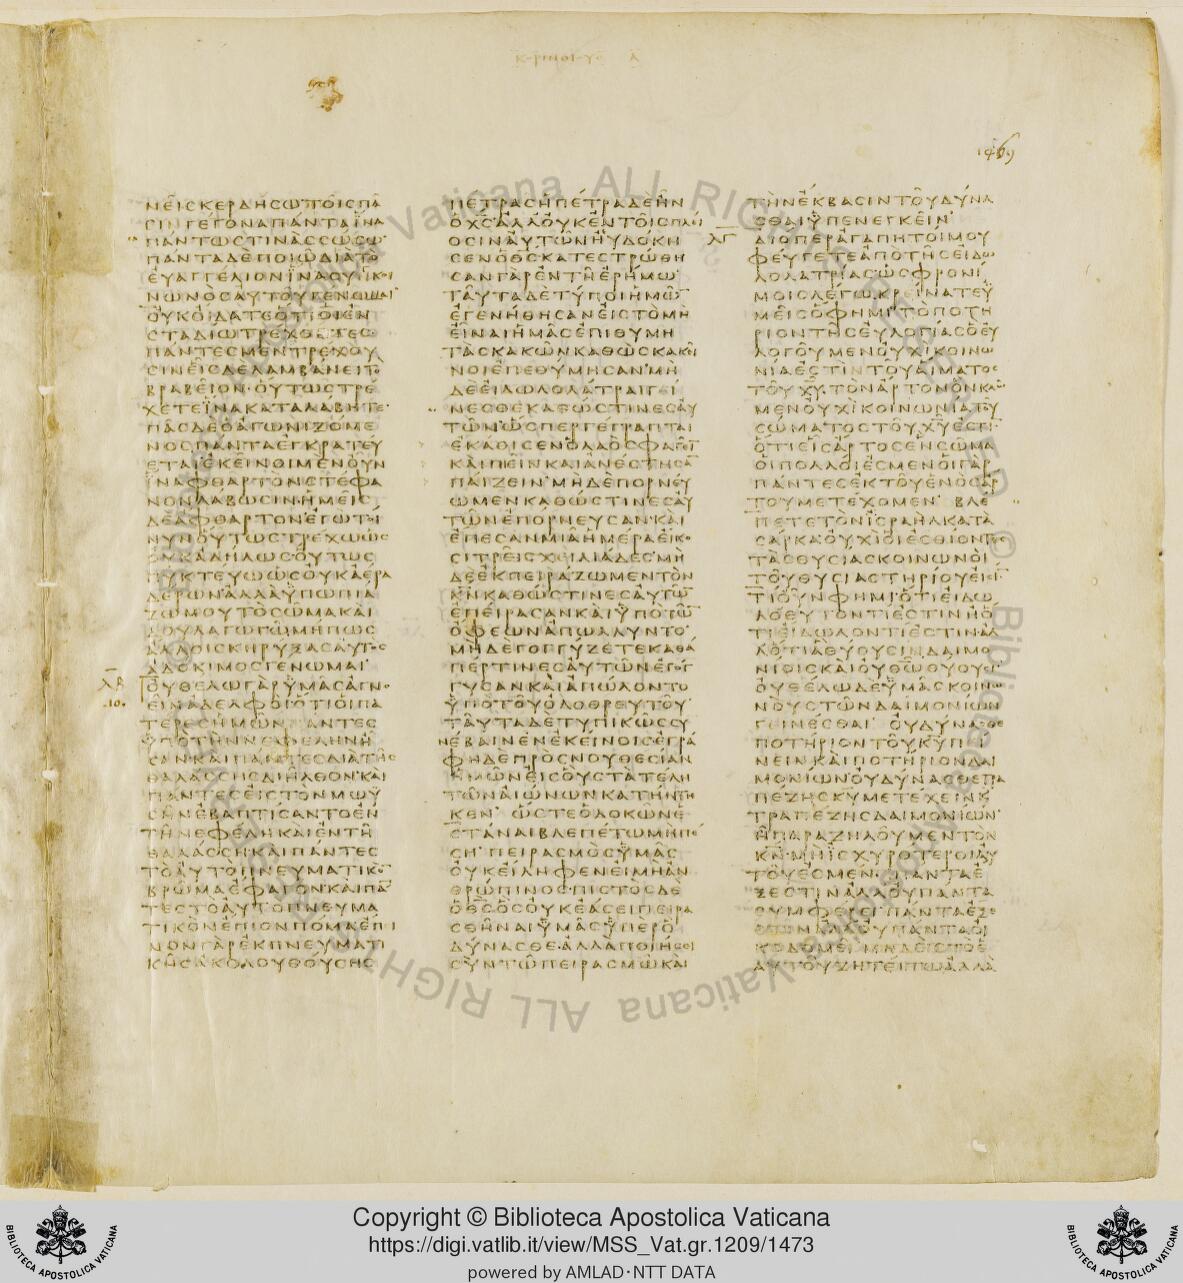 1469
ΝΕΙϹΚΕΡΔΗϹΩΤΟΙϹΠΑ
ϹΙΝΓΕΓΟΝΑΠΑΝΤΑΪΝΑ
ΠΑΝΤΩϹΤΙΝΑϹϹΩϹΩ
ΠΑΝΤΑΔΕΠΟΙΩΔΙΑΤΟ
ΕΥΑΓΓΕΛΙΟΝΪΝΑϹΥΝΚΟΙ
ΝΩΝΟϹΑΥΤΟΥΓΕΝΩΜΑΙ
ΟΥΚΟΙΔΑΤΕΟΤΙΟΙΕΝ
ϹΤΑΔΙΩΤΡΕΧΟΝΤΕϹ
ΠΑΝΤΕϹΜΕΝΤΡΕΧΟΥ
ϹΙΝΕΙϹΔΕΛΑΜΒΑΝΕΙΤΟ
ΒΡΑΒΕΙΟΝ·ΟΥΤΩϹΤΡΕ
ΧΕΤΕΪΝΑΚΑΤΑΛΑΒΗΤΕ·
ΠΑϹΔΕΟΑΓΩΝΙΖΟΜΕ
ΝΟϹΠΑΝΤΑΕΓΚΡΑΤΕΥ
ΕΤΑΙΕΚΕΙΝΟΙΜΕΝΟΥΝ
ΪΝΑΦΘΑΡΤΟΝϹΤΕΦΑ
ΝΟΝΛΑΒΩϹΙΝ·ΗΜΕΙϹ
ΔΕΑΦΘΑΡΤΟΝ·ΕΓΩΤΟΙ
ΝΥΝΟΥΤΩϹΤΡΕΧΩΩϹ
ΟΥΚΑΔΗΛΩϹ·ΟΥΤΩϹ
ΠΥΚΤΕΥΩΩϹΟΥΚΑΕΡΑ
ΔΕΡΩΝΑΛΛΑΫΠΩΠΙΑ
ΖΩΜΟΥΤΟϹΩΜΑΚΑΙ
ΔΟΥΛΑΓΩΓΩΜΗΠΩϹ
ΑΛΛΟΙϹΚΗΡΥΞΑϹΑΥΤΟϹ
ΑΔΟΚΙΜΟϹΓΕΝΩΜΑΙ·
ΛΒ
ΟΥΘΕΛΩΓΑΡΫΜΑϹΑΓΝΟ
ΕΙΝΑΔΕΛΦΟΙ·ΟΤΙΟΙΠΑ
ΤΕΡΕϹΗΜΩΝΠΑΝΤΕϹ
ΫΠΟΤΗΝΝΕΦΕΛΗΝΗ
ϹΑΝΚΑΙΠΑΝΤΕϹΔΙΑΤΗϹ
ΘΑΛΑϹϹΗϹΔΙΗΛΘΟΝ·ΚΑΙ
ΠΑΝΤΕϹΕΙϹΤΟΝΜΩΫ
ϹΗΝΕΒΑΠΤΙϹΑΝΤΟΕΝ
ΤΗΝΕΦΕΛΗΚΑΙΕΝΤΗ
ΘΑΛΑϹϹΗΚΑΙΠΑΝΤΕϹ
ΤΟΑΥΤΟΠΝΕΥΜΑΤΙΚΟΝ
ΒΡΩΜΑΕΦΑΓΟΝ·ΚΑΙΠΑΝ
ΤΕϹΤΟΑΥΤΟΠΝΕΥΜΑ
ΤΙΚΟΝΕΠΙΟΝΠΟΜΑΕΠΙ
ΝΟΝΓΑΡΕΚΠΝΕΥΜΑΤΙ
ΚΗϹΑΚΟΛΟΥΘΟΥϹΗϹ
ΠΕΤΡΑϹΗΠΕΤΡΑΔΕΗΝ
ΟΧϹ·ΑΛΛΟΥΚΕΝΤΟΙϹΠΛΕΙ
ΟϹΙΝΑΥΤΩΝΗΥΔΟΚΗ
ϹΕΝΟΘϹΚΑΤΕϹΤΡΩΘΗ
ϹΑΝΓΑΡΕΝΤΗΕΡΗΜΩ·
ΤΑΥΤΑΔΕΤΥΠΟΙΗΜΩΝ
ΕΓΕΝΗΘΗϹΑΝΕΙϹΤΟΜΗ
ΕΙΝΑΙΗΜΑϹΕΠΙΘΥΜΗ
ΤΑϹΚΑΚΩΝΚΑΘΩϹΚΑΚΕΙ
ΝΟΙΕΠΕΘΥΜΗϹΑΝ·ΜΗ
ΔΕΕΙΔΩΛΟΛΑΤΡΑΙΓΕΙ
ΝΕϹΘΕΚΑΘΩϹΤΙΝΕϹΑΥ
ΤΩΝΩϹΠΕΡΓΕΓΡΑΠΤΑΙ
ΕΚΑΘΙϹΕΝΟΛΑΟϹΦΑΓΕΙΝ
ΚΑΙΠΕΙΝΚΑΙΑΝΕϹΤΗϹΑΝ
ΠΑΙΖΕΙΝ·ΜΗΔΕΠΟΡΝΕΥ
ΩΜΕΝΚΑΘΩϹΤΙΝΕϹΑΥ
ΤΩΝΕΠΟΡΝΕΥϹΑΝ·ΚΑΙ
ΕΠΕϹΑΝΜΙΑΗΜΕΡΑΕΙΚΟ
ϹΙΤΡΕΙϹΧΕΙΛΙΑΔΕϹ·ΜΗ
ΔΕΕΚΠΕΙΡΑΖΩΜΕΝΤΟΝ
ΚΝΚΑΘΩϹΤΙΝΕϹΑΥΤΩΝ
ΕΠΕΙΡΑϹΑΝΚΑΙΫΠΟΤΩΝ
ΟΦΕΩΝΑΠΩΛΛΥΝΤΟ·
ΜΗΔΕΓΟΓΓΥΖΕΤΕΚΑΘΑ
ΠΕΡΤΙΝΕϹΑΥΤΩΝΕΓΟΓ
ΓΥϹΑΝΚΑΙΑΠΩΛΟΝΤΟ
ΫΠΟΤΟΥΟΛΟΘΡΕΥΤΟΥ·
ΤΑΥΤΑΔΕΤΥΠΙΚΩϹϹΥ
ΝΕΒΑΙΝΕΝΕΚΕΙΝΟΙϹΕΓΡΑ
ΦΗΔΕΠΡΟϹΝΟΥΘΕϹΙΑΝ
ΗΜΩΝΕΙϹΟΥϹΤΑΤΕΛΗ
ΤΩΝΑΙΩΝΩΝΚΑΤΗΝΤΗ
ΚΕΝ·ΩϹΤΕΟΔΟΚΩΝΕ
ϹΤΑΝΑΙΒΛΕΠΕΤΩΜΗΠΕ
ϹΗ·ΠΕΙΡΑϹΜΟϹΫΜΑϹ
ΟΥΚΕΙΛΗΦΕΝΕΙΜΗΑΝ
ΘΡΩΠΙΝΟϹ·ΠΙϹΤΟϹΔΕ
ΟΘϹΟϹΟΥΚΕΑϹΕΙΠΕΙΡΑ
ϹΘΗΝΑΙΫΜΑϹΫΠΕΡΟ
ΔΥΝΑϹΘΕ·ΑΛΛΑΠΟΙΗϹΕΙ
ϹΥΝΤΩΠΕΙΡΑϹΜΩΚΑΙ
ΤΗΝΕΚΒΑϹΙΝΤΟΥΔΥΝΑ
ϹΘΑΙΫΠΕΝΕΓΚΕΙΝ·
ΛΓ
ΔΙΟΠΕΡΑΓΑΠΗΤΟΙΜΟΥ
ΦΕΥΓΕΤΕΑΠΟΤΗϹΕΙΔΩ
ΛΟΛΑΤΡΙΑϹΩϹΦΡΟΝΙ
ΜΟΙϹΛΕΓΩ·ΚΡΕΙΝΑΤΕΫ
ΜΕΙϹΟΦΗΜΙ·ΤΟΠΟΤΗ
ΡΙΟΝΤΗϹΕΥΛΟΓΙΑϹΟΕΥ
ΛΟΓΟΥΜΕΝΟΥΧΙΚΟΙΝΩ
ΝΙΑΕϹΤΙΝΤΟΥΑΙΜΑΤΟϹ
ΤΟΥΧΥ·ΤΟΝΑΡΤΟΝΟΝΚΛΩ
ΜΕΝΟΥΧΙΚΟΙΝΩΝΙΑΤΟΥ
ϹΩΜΑΤΟϹΤΟΥΧΥΕϹΤΙ
ΟΤΙΕΙϹΑΡΤΟϹΕΝϹΩΜΑ
ΟΙΠΟΛΛΟΙΕϹΜΕΝΟΙΓΑΡ
ΠΑΝΤΕϹΕΚΤΟΥΕΝΟϹΑΡ
ΤΟΥΜΕΤΕΧΟΜΕΝ·ΒΛΕ
ΠΕΤΕΤΟΝΙϹΡΑΗΛΚΑΤΑ
ϹΑΡΚΑ·ΟΥΧΙΟΙΕϹΘΙΟΝΤΕϹ
ΤΑϹΘΥϹΙΑϹΚΟΙΝΩΝΟΙ
ΤΟΥΘΥϹΙΑϹΤΗΡΙΟΥΕΙϹΙΝ
ΤΙΟΥΝΦΗΜΙ·ΟΤΙΕΙΔΩ
ΛΟΘΥΤΟΝΤΙΕϹΤΙΝΗΟ
ΤΙΕΙΔΩΛΟΝΤΙΕϹΤΙΝΑΛ
ΛΟΤΙΑΘΥΟΥϹΙΝΔΑΙΜΟ
ΝΙΟΙϹΚΑΙΟΥΘΩΘΥΟΥϹΙΝ
ΟΥΘΕΛΩΔΕΫΜΑϹΚΟΙΝΩ
ΝΟΥϹΤΩΝΔΑΙΜΟΝΙΩΝ
ΓΕΙΝΕϹΘΑΙ·ΟΥΔΥΝΑϹΘΕ
ΠΟΤΗΡΙΟΝΤΟΥΚΥΠΙ
ΝΕΙΝΚΑΙΠΟΤΗΡΙΟΝΔΑΙ
ΜΟΝΙΩΝ·ΟΥΔΥΝΑϹΘΕΤΡΑ
ΠΕΖΗϹΚΥΜΕΤΕΧΕΙΝΚΑΙ
ΤΡΑΠΕΖΗϹΔΑΙΜΟΝΙΩΝ·
ΗΠΑΡΑΖΗΛΟΥΜΕΝΤΟΝ
ΚΝ·ΜΗΙϹΧΥΡΟΤΕΡΟΙΑΥ
ΤΟΥΕϹΜΕΝ·ΠΑΝΤΑΕ
ΞΕϹΤΙΝΑΛΛΟΥΠΑΝΤΑ
ϹΥΜΦΕΡΕΙ·ΠΑΝΤΑΕΞΕ
ϹΤΙΝΑΛΛΟΥΠΑΝΤΑΟΙ
ΚΟΔΟΜΕΙ·ΜΗΔΕΙϹΤΟΕ
ΑΥΤΟΥΖΗΤΕΙΤΩΑΛΛΑ
Vaticana ALL RIGHTS RESERVED © Biblioteca Vaticana ALL RIGHTS
BIBLIOTECA APOSTOLICA VATICANA
Copyright © Biblioteca Apostolica Vaticana
https://digi.vatlib.it/view/MSS_Vat.gr.1209/1473
powered by AMLAD·NTT DATA
BIBLIOTECA APOSTOLICA VATICANA